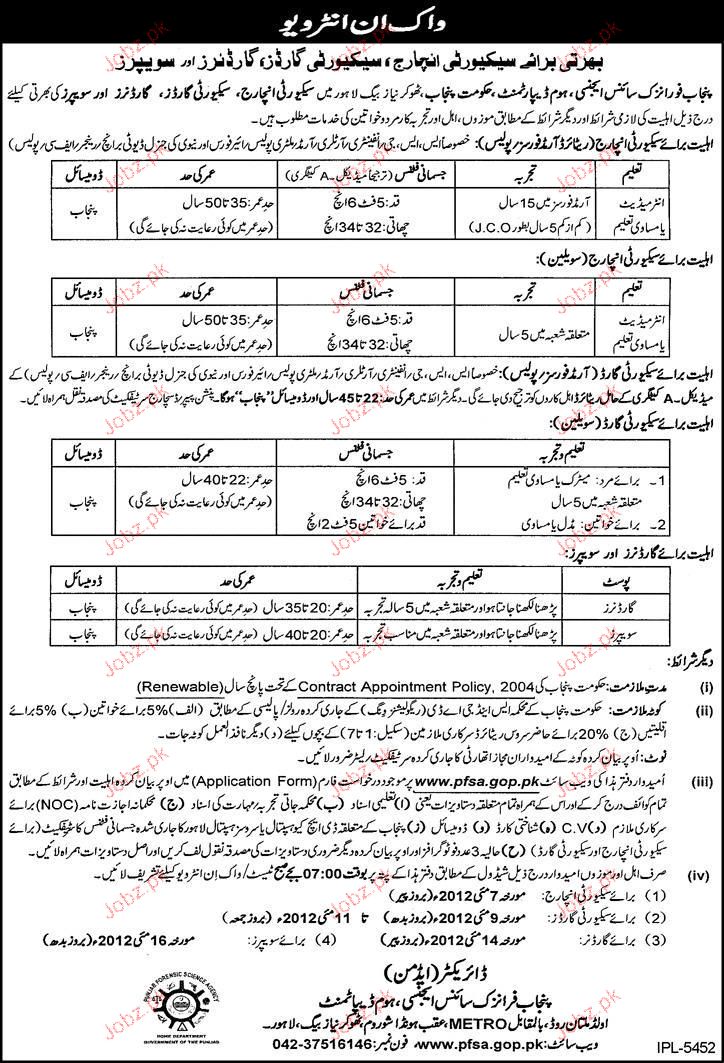 واک ان انٹرویو
بھرتی برائے سیکیورٹی انچارج، سیکیورٹی گارڈز، گارڈنرز اور سویپرز
پنجاب فورانزک سائنس ایجنسی، ہوم ڈیپارٹمنٹ، حکومت پنجاب، ٹھوکر نیاز بیگ لاہور میں سیکیورٹی انچارج، سیکیورٹی گارڈز، گارڈنرز اور سویپرز کی بھرتی کیلئے
درج ذیل اہلیت کی لازمی شرائط اور دیگر شرائط کے مطابق موزوں، اہل اور تجربہ کار مرد و خواتین کی خدمات مطلوب ہیں۔
اہلیت برائے سیکیورٹی انچارج (ریٹائرڈ آرمڈ فورسز/پولیس): خصوصاً ایس، ایس، جی/انفینٹری/آرٹلری/آرمڈ/ملٹری پولیس/ائیر فورس اور نیوی کی جنرل ڈیوٹی برانچ/رینجر/ایف سی/پولیس)
تعلیم تجربہ جسمانی فٹنس (ترجیحاً میڈیکل۔A کیٹگری) عمر کی حد ڈومیسائل
انٹرمیڈیٹ آرمڈ فورسز میں 15 سال قد: 5 فٹ 6 انچ حد عمر: 35 تا 50 سال پنجاب
یا مساوی تعلیم (کم از کم 5 سال بطور J.C.O) چھاتی: 32 تا 34 انچ (حد عمر میں کوئی رعایت نہ کی جائے گی)
اہلیت برائے سیکیورٹی انچارج (سویلین):
تعلیم تجربہ جسمانی فٹنس عمر کی حد ڈومیسائل
انٹرمیڈیٹ متعلقہ شعبہ میں 5 سال قد: 5 فٹ 6 انچ حد عمر: 35 تا 50 سال پنجاب
یا مساوی تعلیم چھاتی: 32 تا 34 انچ (حد عمر میں کوئی رعایت نہ کی جائے گی)
اہلیت برائے سیکیورٹی گارڈ (آرمڈ فورسز/پولیس): خصوصاً ایس، ایس، جی/انفینٹری/آرٹلری/آرمڈ/ملٹری پولیس/ائیر فورس اور نیوی کی جنرل ڈیوٹی برانچ/رینجر/ایف سی/پولیس) کے
میڈیکل۔A کیٹگری کے حامل ریٹائرڈ اہل کاروں کو ترجیح دی جائے گی۔ دیگر شرائط میں عمر کی حد: 22 تا 45 سال اور ڈومیسائل "پنجاب" ہوگا۔ پنشن پیپر/ڈسچارج سرٹیفکیٹ کی مصدقہ نقل ہمراہ لائیں۔
اہلیت برائے سیکیورٹی گارڈ (سویلین):
تعلیم و تجربہ جسمانی فٹنس عمر کی حد ڈومیسائل
1۔ برائے مرد: میٹرک یا مساوی تعلیم قد: 5 فٹ 6 انچ حد عمر: 22 تا 40 سال پنجاب
متعلقہ شعبہ میں 5 سال چھاتی: 32 تا 34 انچ (حد عمر میں کوئی رعایت نہ کی جائے گی)
2۔ برائے خواتین: مڈل یا مساوی قد برائے خواتین 5 فٹ 2 انچ
اہلیت برائے گارڈنرز اور سویپرز:
پوسٹ تعلیم و تجربہ عمر کی حد ڈومیسائل
گارڈنرز پڑھنا لکھنا جانتا ہو اور متعلقہ شعبہ میں 5 سالہ تجربہ حد عمر: 20 تا 35 سال (حد عمر میں کوئی رعایت نہ کی جائے گی) پنجاب
سویپرز پڑھنا لکھنا جانتا ہو اور متعلقہ شعبہ میں مناسب تجربہ حد عمر: 20 تا 40 سال (حد عمر میں کوئی رعایت نہ کی جائے گی) پنجاب
دیگر شرائط:
(i) مدت ملازمت: حکومت پنجاب کی Contract Appointment Policy, 2004 کے تحت پانچ سال (Renewable)
(ii) کوٹہ ملازمت: حکومت پنجاب کے محکمہ ایس اینڈ جی اے ڈی (ریگولیشنز ونگ) کے جاری کردہ رولز/پالیسی کے مطابق (الف) 5% برائے خواتین (ب) 5% برائے
اقلیتیں (ج) 20% برائے حاضر سروس/ریٹائرڈ سرکاری ملازمین (سکیل: 1 تا 7) کے بچوں کیلئے (د) دیگر نافذ العمل کوٹہ جات۔
نوٹ: اوپر بیان کردہ کوٹہ کے امیدواران مجاز اتھارٹی کا جاری کردہ سرٹیفکیٹ/لیٹر ضرور لائیں۔
(iii) اُمیدوار دفتر ہذا کی ویب سائٹ www.pfsa.gop.pk پر موجود درخواست فارم (Application Form) میں اوپر بیان کردہ اہلیت اور شرائط کے مطابق
تمام کوائف درج کر کے اور اس کے ہمراہ تمام متعلقہ دستاویزات یعنی (ا) تعلیمی اسناد (ب) محکمہ جاتی تجربہ/مہارت کی اسناد (ج) محکمانہ اجازت نامہ (NOC) برائے
سرکاری ملازم (د) C.V (ہ) شناختی کارڈ (و) ڈومیسائل (ز) پنجاب کے متعلقہ ڈی ایچ کیو ہسپتال یا سروسز ہسپتال لاہور کا جاری شدہ جسمانی فٹنس کا سرٹیفکیٹ (برائے
سیکیورٹی انچارج اور سیکیورٹی گارڈ) (ح) حالیہ 3 عدد فوٹو گرافز اور اوپر بیان کردہ دیگر ضروری دستاویزات کی مصدقہ نقول لف کریں اور اصل دستاویزات ہمراہ لائیں۔
(iv) صرف اہل اور موزوں امیدوار درج ذیل شیڈول کے مطابق دفتر ہذا کے پتہ پر بوقت 07:00 بجے صبح ٹیسٹ/واک اِن انٹرویو کیلئے تشریف لائیں۔
(1) برائے سیکیورٹی انچارج: مورخہ 7 مئی 2012ء (بروز پیر)
(2) برائے سیکیورٹی گارڈز: مورخہ 9 مئی 2012ء (بروز بدھ) تا 11 مئی 2012ء (بروز جمعہ)
(3) برائے گارڈنر: مورخہ 14 مئی 2012ء (بروز پیر) (4) برائے سویپرز: مورخہ 16 مئی 2012ء (بروز بدھ)
ڈائریکٹر (ایڈمن)
پنجاب فرانزک سائنس ایجنسی، ہوم ڈیپارٹمنٹ
اولڈ ملتان روڈ، بالمقابل METRO، عقب ہونڈا شوروم، ٹھوکر نیاز بیگ، لاہور۔
ویب سائٹ: www.pfsa.gop.pk، فون نمبر: 042-37516146
PUNJAB FORENSIC SCIENCE AGENCY
HOME DEPARTMENT
GOVERNMENT OF THE PUNJAB
IPL-5452
Jobz.pk